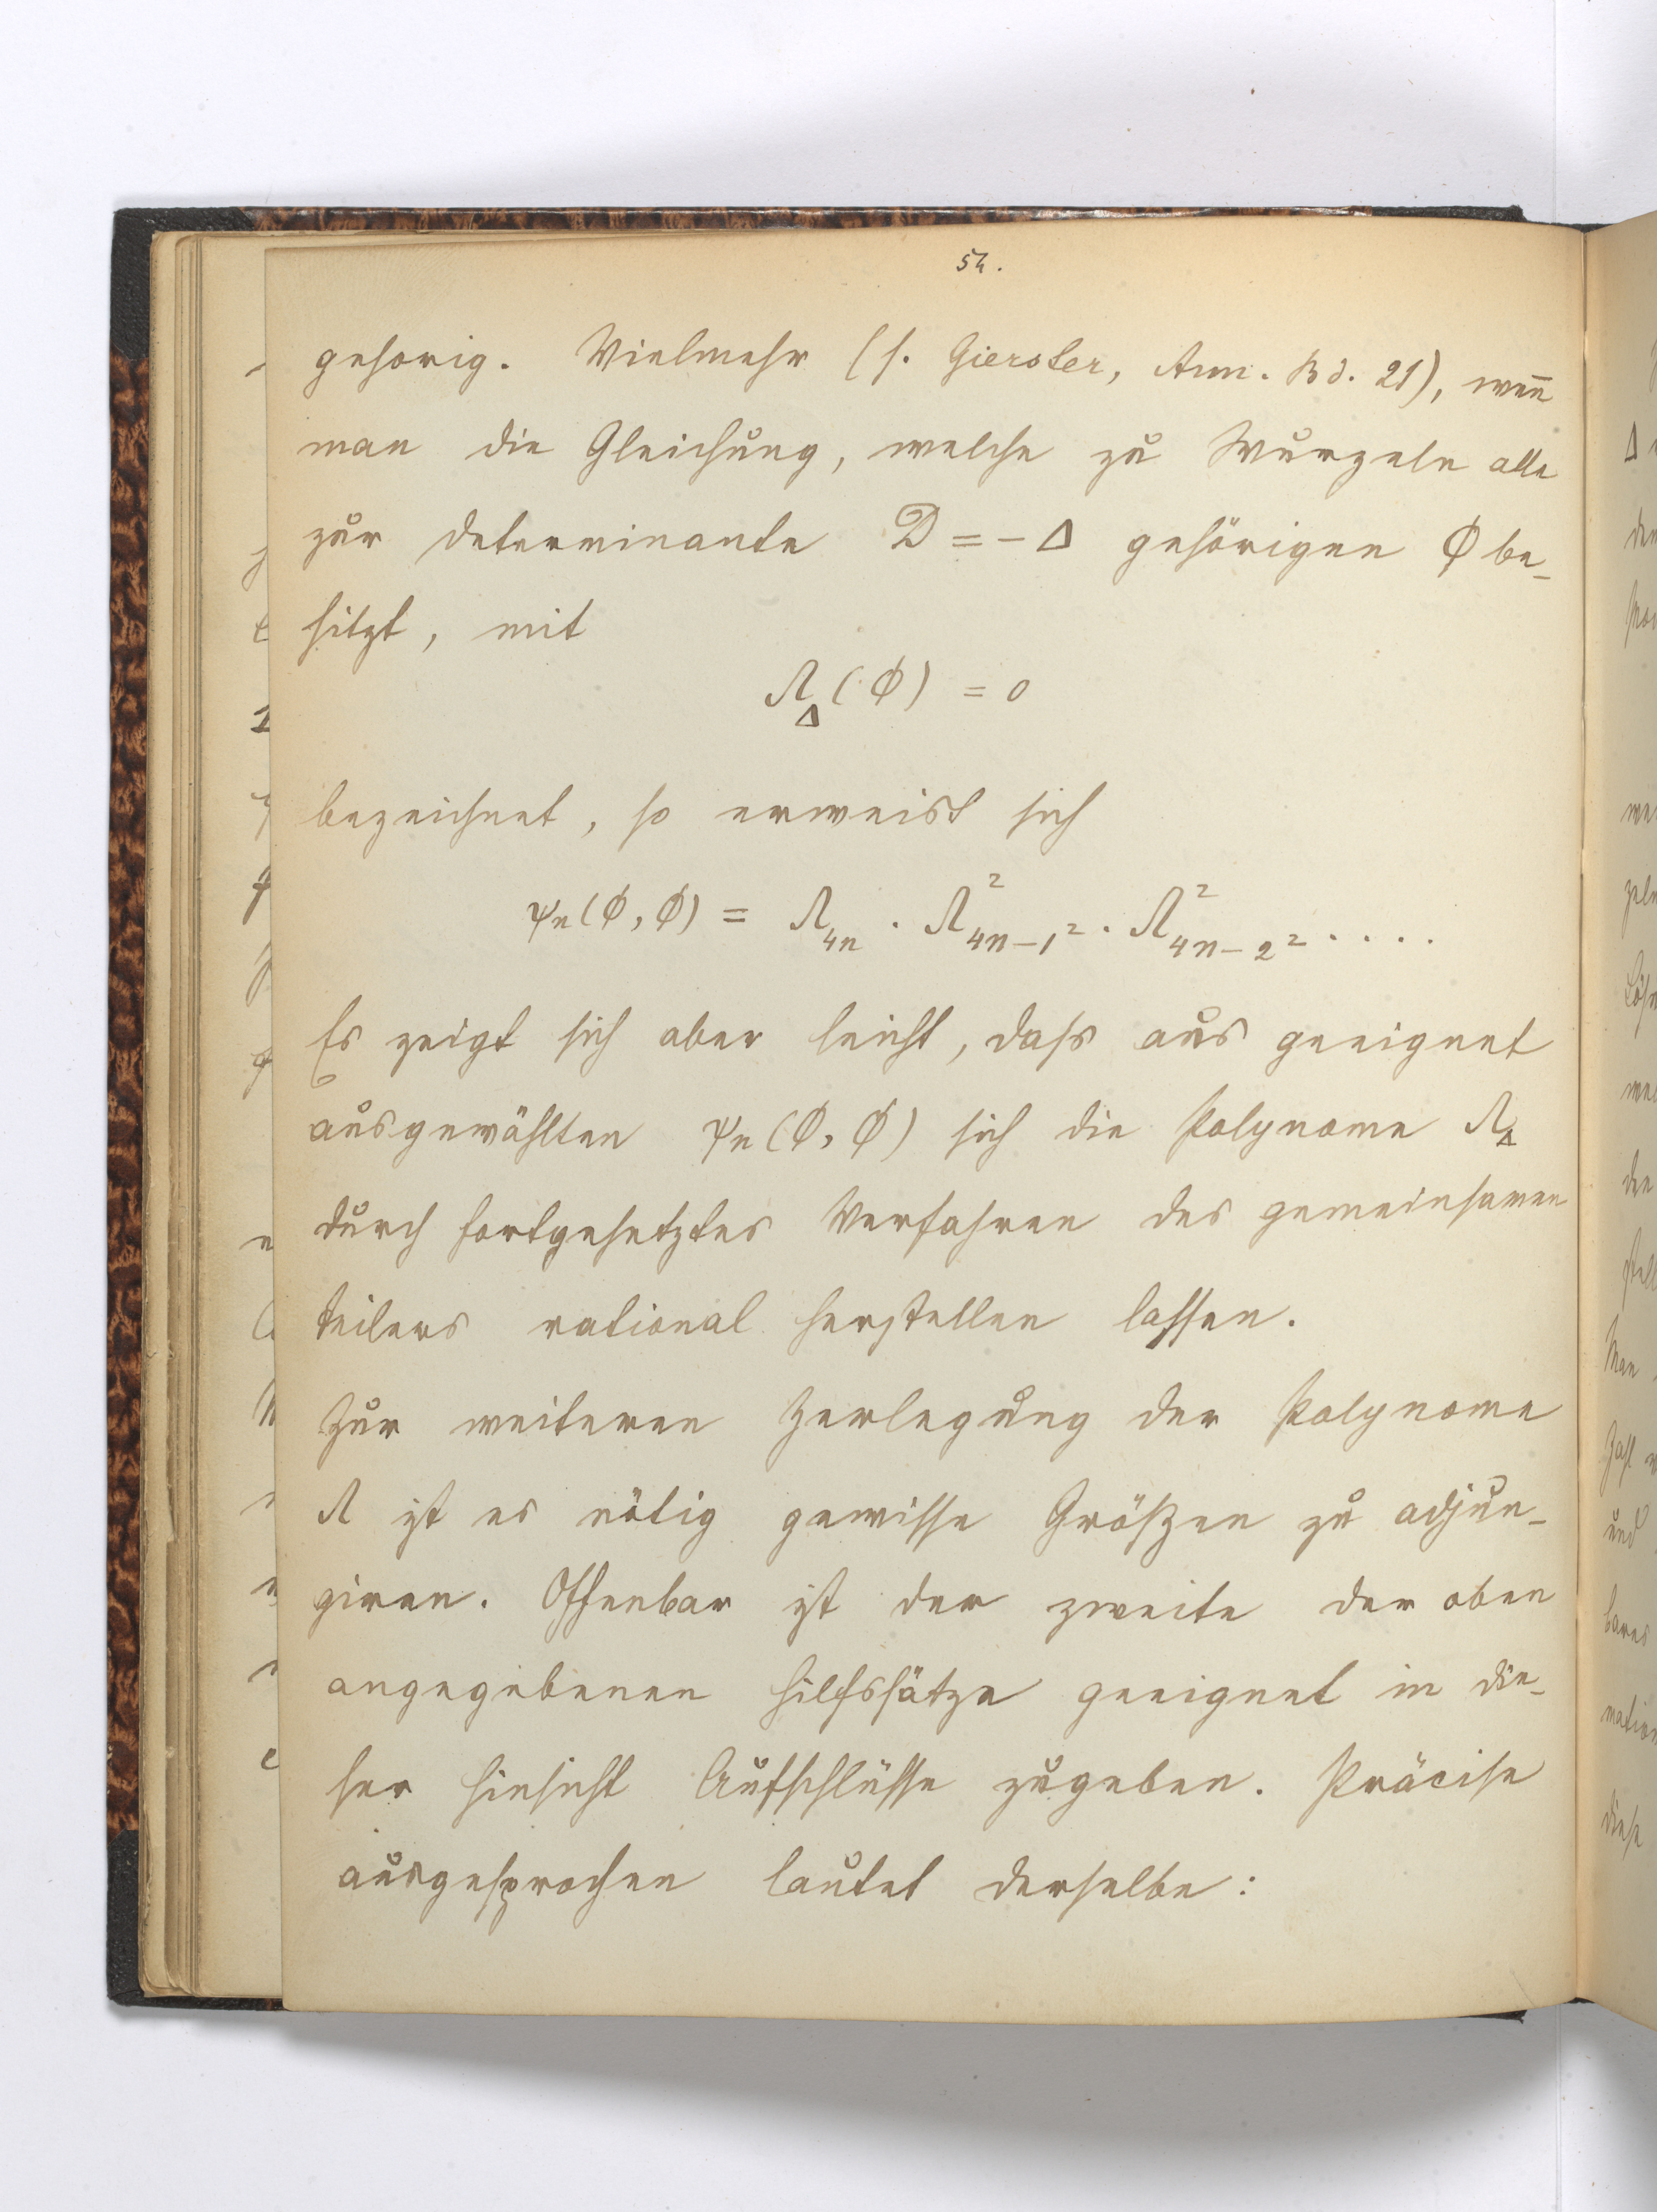 54.
gehorig. Vielmehr (s. Gierster, Ann. Bd. 21), wen̄
man die Gleichung, welche zu Wurzeln alle
zur Determinante D = - Δ gehörigen ϕ be-
sitzt, mit
Λ_Δ (ϕ) = 0
bezeichnet, so erweist sich
ψn(ϕ, ϕ) = Λ_4n · Λ²_4n-1² · Λ²_4n-2² · . . .
Es zeigt sich aber leicht, dass aus geeignet
ausgewählten ψn (ϕ, ϕ) sich die Polynome Λ_Δ
durch fortgesetztes Verfahren des gemeinsamen
Teilers rational herstellen lassen.
Zur weiteren Zerlegung der Polynome
Λ ist es nötig gewisse Größen zu adjun-
giren. Offenbar ist der zweite der oben
angegebenen Hilfssätze geeignet in die-
ser Hinsicht Aufschlüsse zugeben. Präcise
ausgesprochen lautet derselbe: